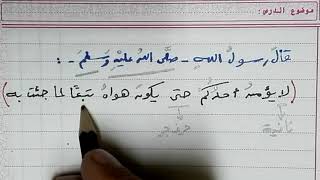 موضوع الدرس:
قَالَ رَسُولُ اللهِ - صَلَّى اللهُ عَلَيْهِ وَسَلَّمَ - :
( لا يؤمنُ أحدُكُم حتى يكونَ هواهُ تَبَعًا لما جئتُ به )
نافية
حرف جر